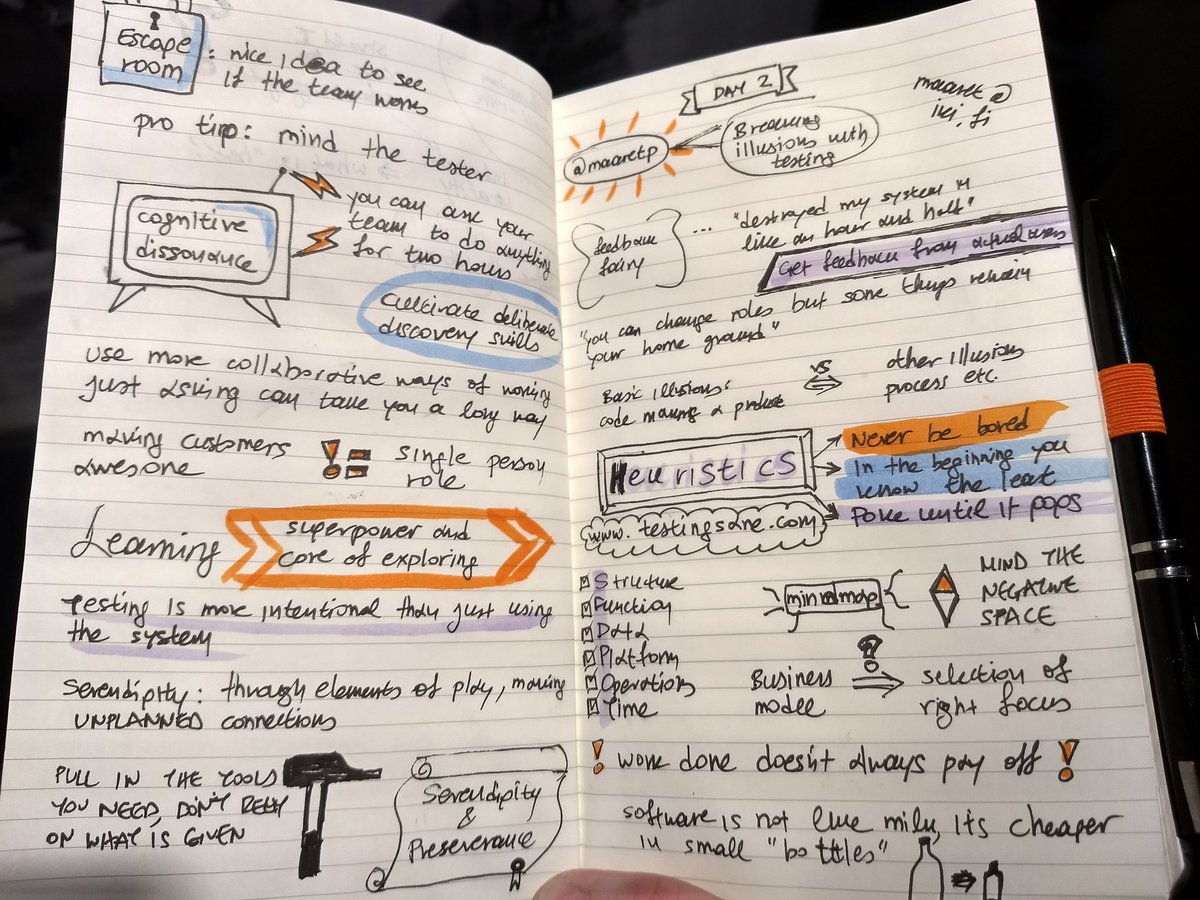 Escape
room
: nice idea to see
if the team works
pro tip: mind the tester
cognitive
dissonance
you can ask your
team to do anything
for two hours
cultivate deliberate
discovery skills
use more collaborative ways of working
just asking can take you a long way
making customers
awesome
!=
single person
role
Learning
superpower and
core of exploring
Testing is more intentional than just using
the system
Serendipity: through elements of play, making
UNPLANNED connections
PULL IN THE TOOLS
YOU NEED, DON'T RELY
ON WHAT IS GIVEN
Serendipity
&
Preserverance
DAY 2
maaret@
iki.fi
@maaretp
Breaking
illusions with
testing
feedback
fairy
... "destroyed my system in
like an hour and half"
Get feedback from actual users
"you can change roles but some things remain
your home ground"
Basic illusions:
code making a product
vs
other illusions
process etc.
Heuristics
Never be bored
In the beginning you
know the least
Poke until it pops
www.testingsane.com
Structure
Function
Data
Platform
Operations
Time
mindmap
MIND THE
NEGATIVE
SPACE
Business
model
?
selection of
right focus
! work done doesn't always pay off !
software is not like milk, its cheaper
in small "bottles"